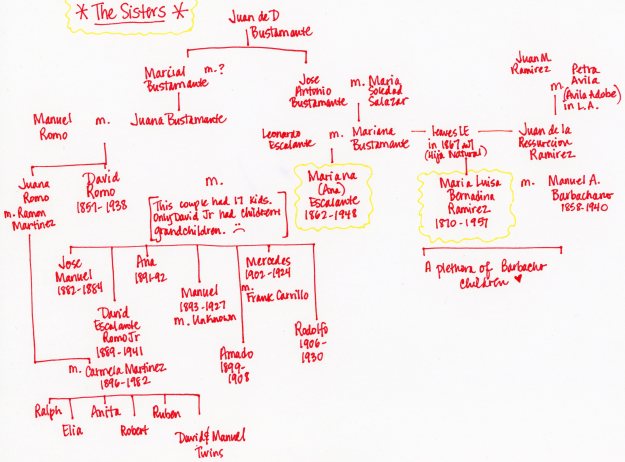 * The Sisters *
Juan de D
Bustamante
Marcial
Bustamante
m. ?
Jose
Antonio
Bustamante
m.
Maria
Soledad
Salazar
Juan M.
Ramirez
m.
Petra
Avila
(Avila Adobe)
in L.A.
Manuel
Romo
m.
Juana Bustamante
Leonardo
Escalante
m.
Mariana
Bustamante
leaves LE
in 1867 w/
(Hija Natural)
Juan de la
Ressurecion
Ramirez
Juana
Romo
m. Ramon
Martinez
David
Romo
1857-1938
m.
[This couple had 17 kids.
Only David Jr had children &
grandchildren. :(]
Mariana
(Ana)
Escalante
1862-1948
Maria Luisa
Bernadina
Ramirez
1870-1957
m.
Manuel A.
Barbachano
1858-1940
A plethora of Barbacho
children ♥
Jose
Manuel
1882-1884
David
Escalante
Romo Jr
1889-1941
Ana
1891-92
Manuel
1893-1927
m. Unknown
Amado
1899-
1908
Mercedes
1902-1924
m.
Frank Carrillo
Rodolfo
1906-
1930
m. Carmela Martinez
1896-1982
Ralph
Elia
Anita
Robert
Ruben
David & Manuel
Twins